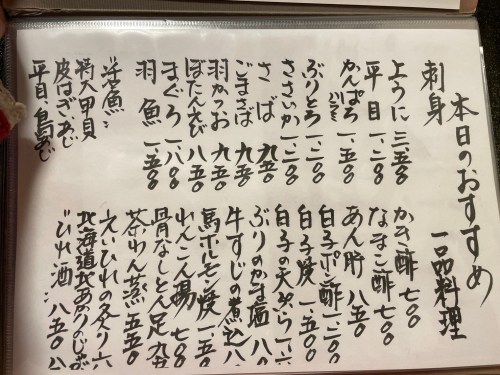 本日のおすすめ
刺身
ように 三、五〇〇
平目 一、二〇〇
かんぱち 一、五〇〇
ぶりとろ 一、二〇〇
ささいか 一、二〇〇
さば 九五〇
ごまさば 九五〇
羽かつお 九五〇
ぼたんえび 八五〇
まぐろ 一、八〇〇
羽魚 一、五〇〇
活魚…
特大甲貝
皮はぎ、あじ
平目、島あじ
一品料理
かき酢 七〇〇
なまこ酢 七〇〇
あん肝 八五〇
白子ポン酢 一、二〇〇
白子焼 一、五〇〇
白子の天ぷら 一、六
ぶりのかま塩 一、八〇
牛すじの煮込 八
馬ホルモン焼 一、五五〇
れんこん揚 七〇〇
骨なしとん足 九五
茶わん蒸 五五〇
えいひれの炙り 六
北海道北あかりのじゃが
ひれ酒… 八五〇